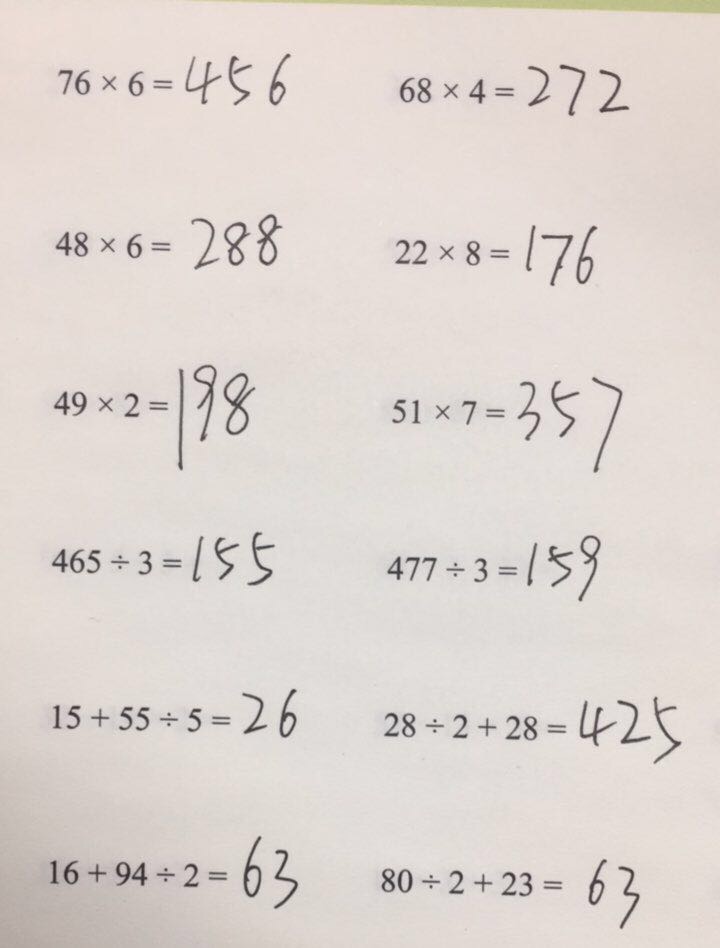 76 × 6 = 456 68 × 4 = 272
48 × 6 = 288 22 × 8 = 176
49 × 2 = 198 51 × 7 = 357
465 ÷ 3 = 155 477 ÷ 3 = 159
15 + 55 ÷ 5 = 26 28 ÷ 2 + 28 = 425
16 + 94 ÷ 2 = 63 80 ÷ 2 + 23 = 63